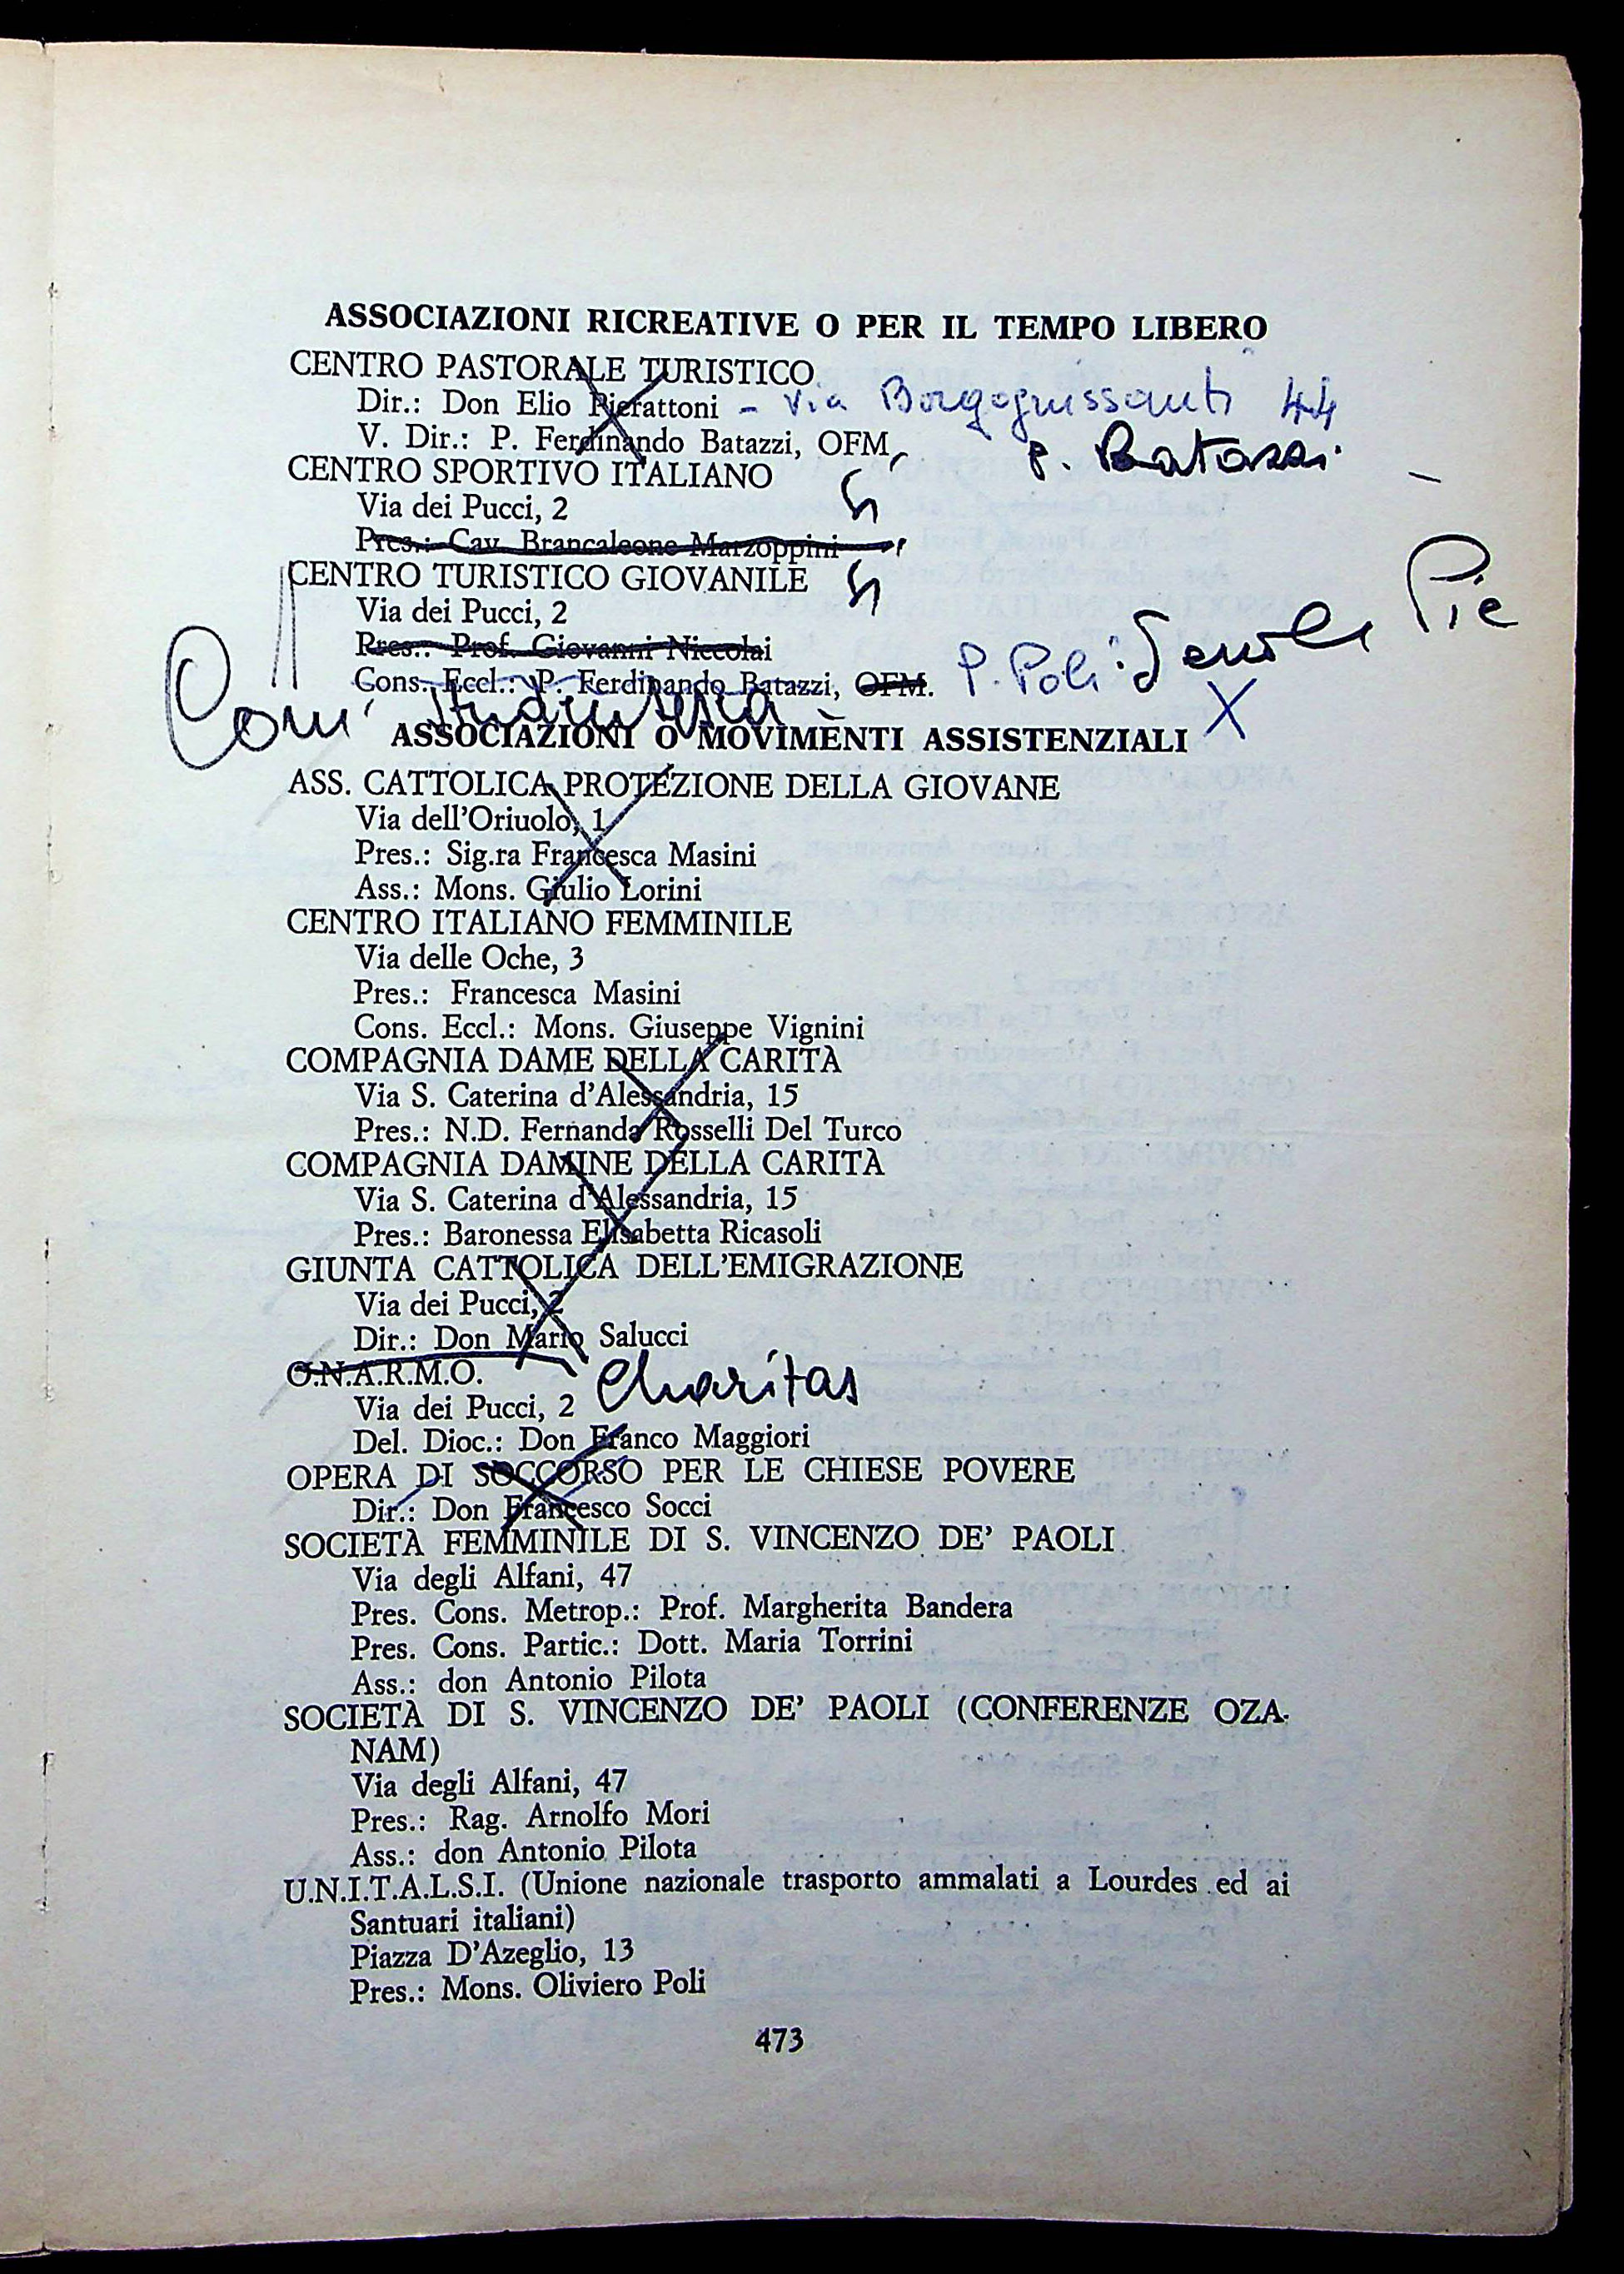 ASSOCIAZIONI RICREATIVE O PER IL TEMPO LIBERO
CENTRO PASTORALE TURISTICO
Dir.: Don Elio Pierattoni - Via Borgognissanti 44
V. Dir.: P. Ferdinando Batazzi, OFM, P. Batazzi
CENTRO SPORTIVO ITALIANO
Via dei Pucci, 2
Pres.: Cav. Brancaleone Marzoppini
CENTRO TURISTICO GIOVANILE
Via dei Pucci, 2
Pres.: Prof. Giovanni Niccolai
Cons. Eccl.: P. Ferdinando Batazzi, OFM. P. Poli Scuole Pie
Com studentesca
ASSOCIAZIONI O MOVIMENTI ASSISTENZIALI
ASS. CATTOLICA PROTEZIONE DELLA GIOVANE
Via dell'Oriuolo, 1
Pres.: Sig.ra Francesca Masini
Ass.: Mons. Giulio Lorini
CENTRO ITALIANO FEMMINILE
Via delle Oche, 3
Pres.: Francesca Masini
Cons. Eccl.: Mons. Giuseppe Vignini
COMPAGNIA DAME DELLA CARITÀ
Via S. Caterina d'Alessandria, 15
Pres.: N.D. Fernanda Rosselli Del Turco
COMPAGNIA DAMINE DELLA CARITÀ
Via S. Caterina d'Alessandria, 15
Pres.: Baronessa Elisabetta Ricasoli
GIUNTA CATTOLICA DELL'EMIGRAZIONE
Via dei Pucci, 2
Dir.: Don Mario Salucci
O.N.A.R.M.O. Charitas
Via dei Pucci, 2
Del. Dioc.: Don Franco Maggiori
OPERA DI SOCCORSO PER LE CHIESE POVERE
Dir.: Don Francesco Socci
SOCIETÀ FEMMINILE DI S. VINCENZO DE' PAOLI
Via degli Alfani, 47
Pres. Cons. Metrop.: Prof. Margherita Bandera
Pres. Cons. Partic.: Dott. Maria Torrini
Ass.: don Antonio Pilota
SOCIETÀ DI S. VINCENZO DE' PAOLI (CONFERENZE OZA-
NAM)
Via degli Alfani, 47
Pres.: Rag. Arnolfo Mori
Ass.: don Antonio Pilota
U.N.I.T.A.L.S.I. (Unione nazionale trasporto ammalati a Lourdes ed ai
Santuari italiani)
Piazza D'Azeglio, 13
Pres.: Mons. Oliviero Poli
473